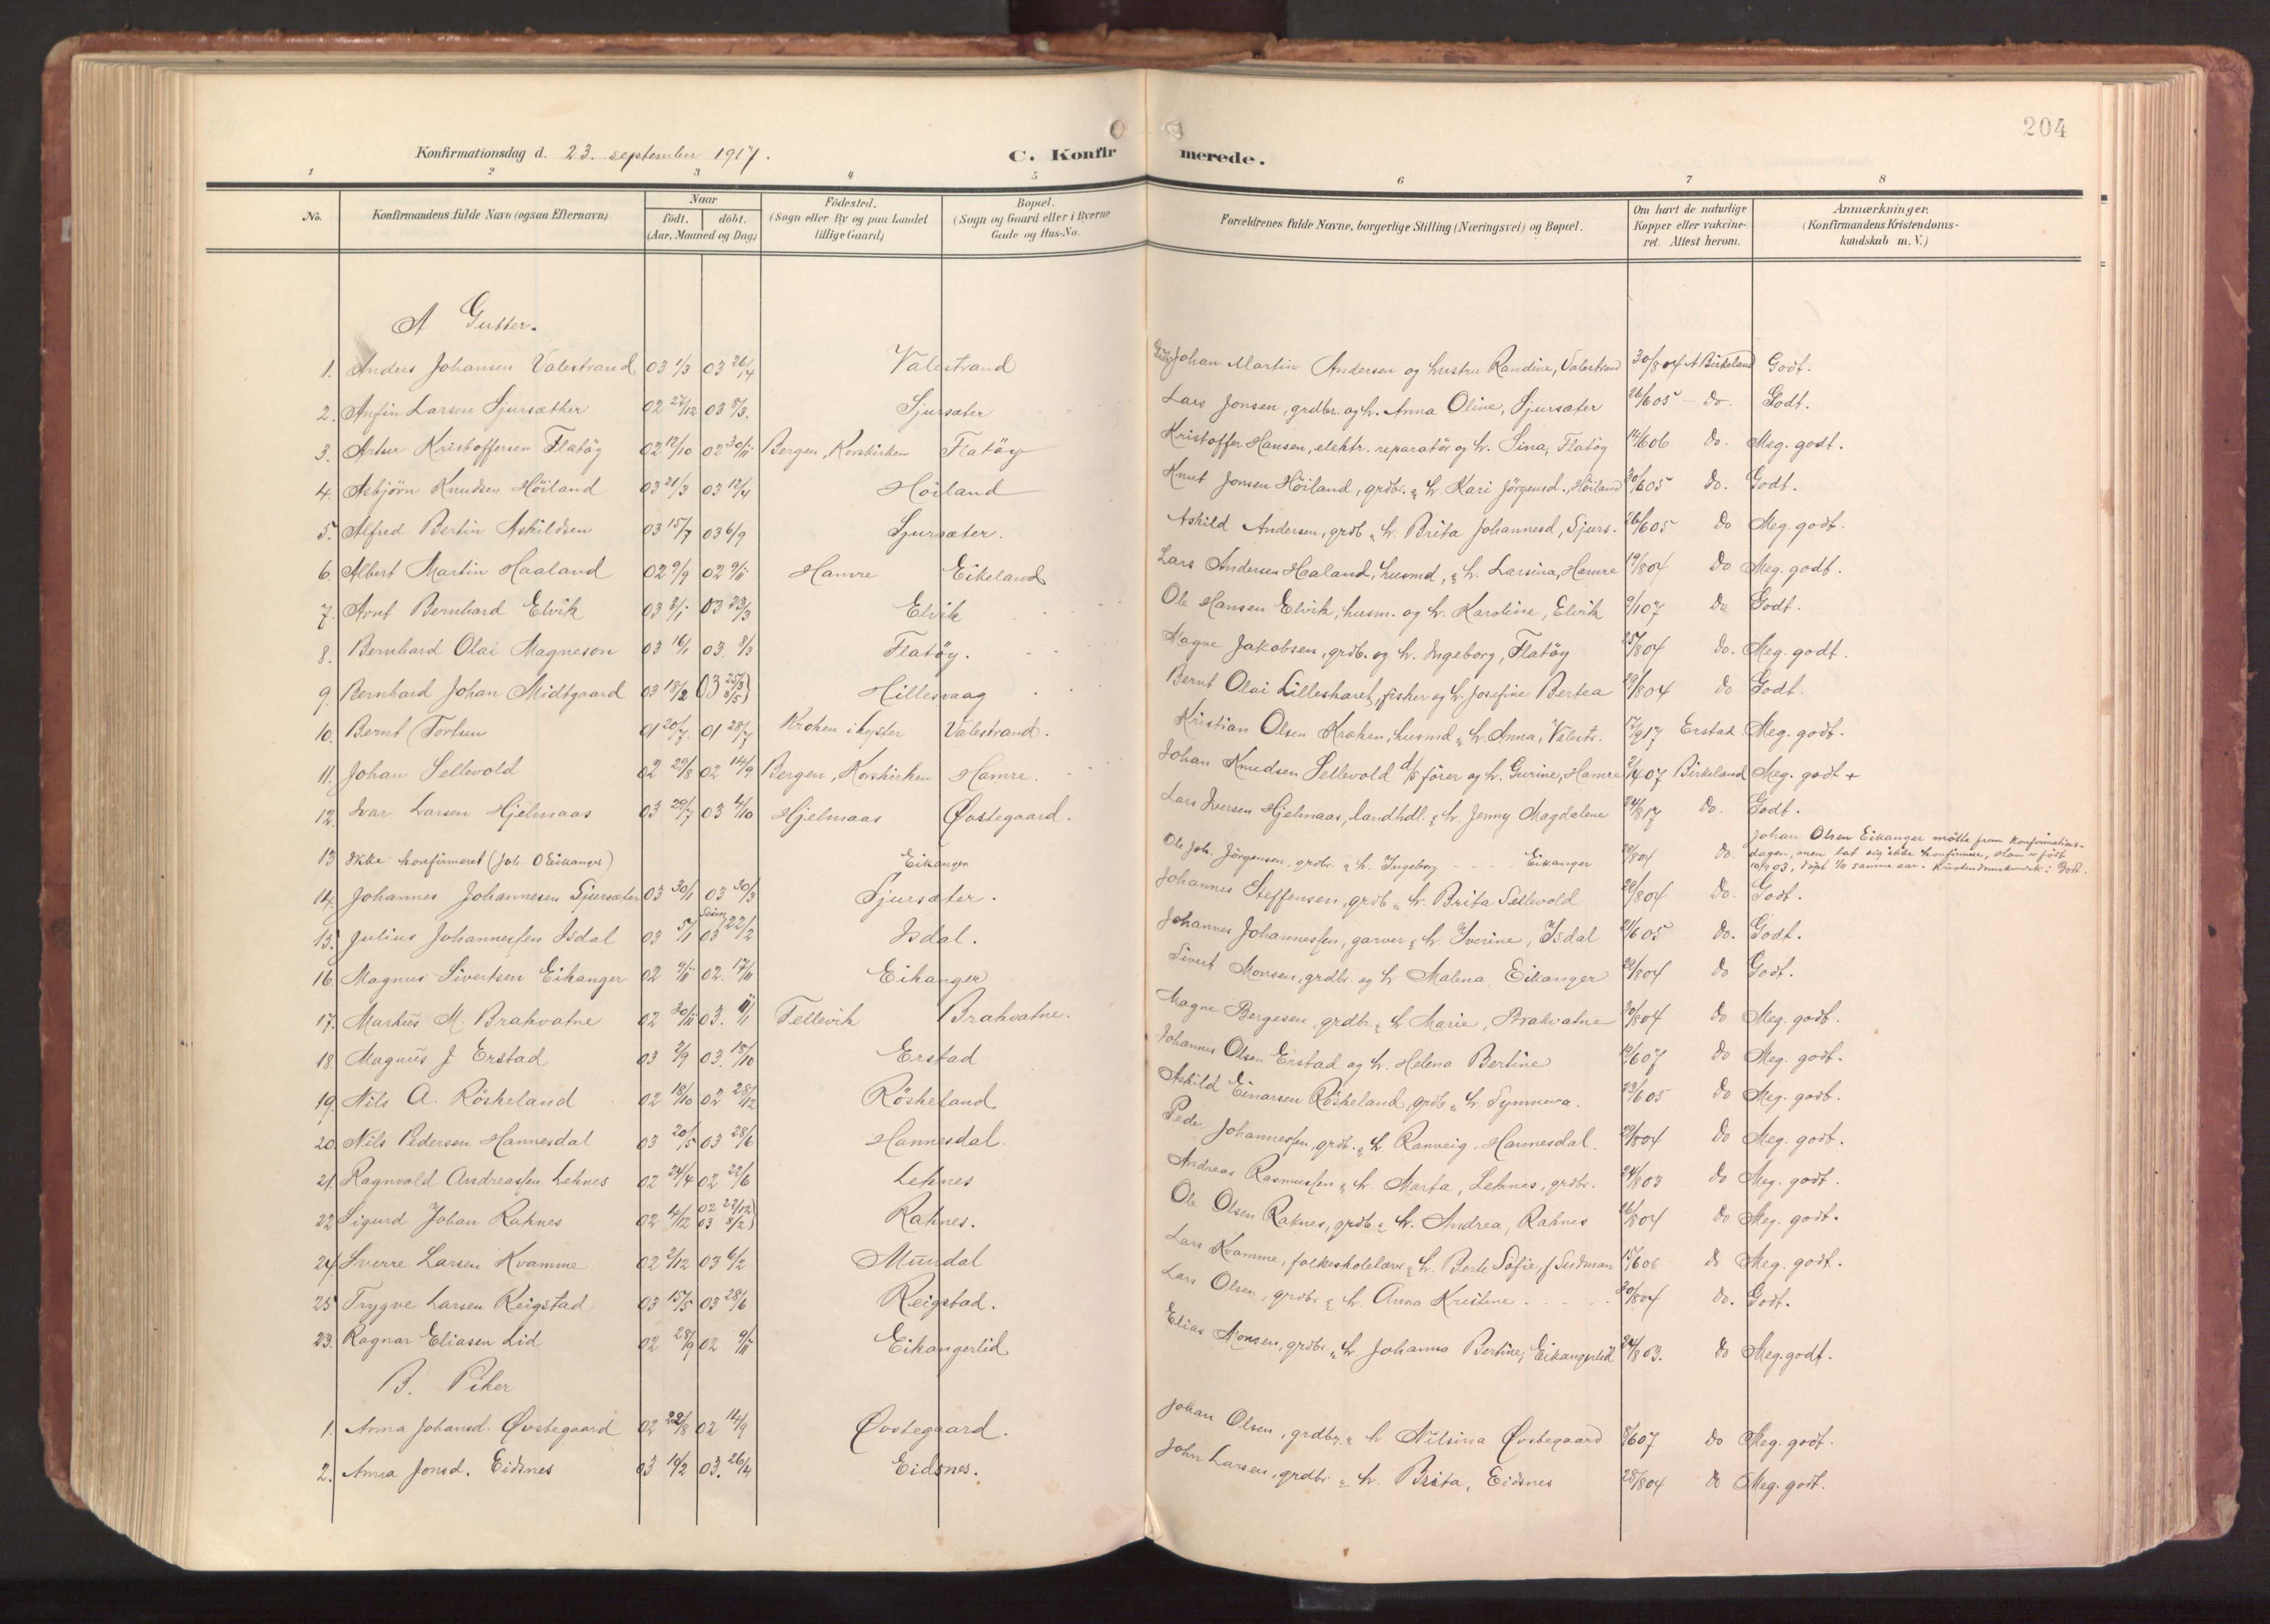 204
Konfirmationsdag d. 23. september 1917.
C. Konfirmerede.
1 2 3 4 5 6 7 8
No.
Konfirmandens fulde Navn (ogsaa Efternavn)
Naar
födt. döbt.
(Aar, Maaned og Dag)
Födested.
(Sogn eller By og paa Landet
tillige Gaard)
Bopæl.
(Sogn og Gaard eller i Byerne
Gade og Hus-No.
Forældrenes fulde Navne, borgerlige Stilling (Næringsvei) og Bopæl.
Om havt de naturlige
Kopper eller vakcine-
ret. Attest herom.
Anmærkninger.
(Konfirmandens Kristendoms-
kundskab m. V.)
A Gutter.
1. Anders Johansen Valestrand 03 1/3 03 26/4 Valestrand Johan Martin Andersen og hustru Randine, Valestrand 30/8 04 A Birkeland Godt.
2. Anfin Larsen Sjursæther 02 27/12 03 8/3. Sjursæter Lars Jonsen, grdbr. og h. Anna Oline, Sjursæter 26/6 05 do. Godt.
3. Artur Kristoffersen Flatöy 02 12/10 02 30/11 Bergen, Korskirken Flatöy Kristoffer Hansen, elektr. reparatör og h. Sina, Flatöy 14/6 06 do. Meg. godt.
4. Asbjörn Knudsen Höiland 03 21/3 03 12/4 Höiland Knut Jonsen Höiland, grdbr. & h. Kari Jörgensd., Höiland 30/6 05 do. Godt.
5. Alfred Bertin Askildsen 03 15/7 03 6/9 Sjursæter. Askild Andersen, grdb & h. Brita Johannesd, Sjurs. 26/6 05 do Meg. godt.
6. Albert Martin Haaland 02 9/9 02 9/11 Hamre Eikeland Lars Andersen Haaland, husmd, & h. Larsina, Hamre 19/8 04 do Meg. godt.
7. Arnt Bernhard Elvik 03 2/1 03 23/3 Elvik Ole Hansen Elvik, husm. og h. Karoline, Elvik 9/10 7 do Godt.
8. Bernhard Olai Magneson 03 16/1 03. 8/3 Flatöy. Magne Jakobsen, grdb. og h. Ingeborg, Flatöy 25/8 04 do. Meg. godt.
9. Bernhard Johan Midtgaard 03 18/2 (03 25/3 3/5) Hillesvaag Bernt Olai Lilleskaret, fisker og h. Josefine Bertea 29/8 04 do Godt.
10. Bernt Fortun 01 20/7. 01 28/7 Kroken i Lyster Valestrand. Kristian Olsen Kroken, husmd & h Anna, Valestr. 17/9 17 Erstad Meg. godt.
11. Johan Sellevold 02 29/8 02 14/9 Bergen, Korskirken Hamre. Johan Knudsen Sellevold d/s förer og h. Gurine, Hamre 2/4 07 Birkeland Meg. godt +
12. Ivar Larsen Hjelmaas 03 29/7 03 4/10 Hjelmaas Øvstegaard. Lars Iversen Hjelmaas, landhdl. & h. Jenny Magdalene 24/8 17 do. Godt.
13 Ikke konfirmeret (Joh. O Eikanger) Eikanger Ole Joh. Jörgensen, grdbr. & h. Ingeborg Eikanger 29/8 04 do. Johan Olsen Eikanger mötte frem konfirmations-
dagen, men lot sig ikke konfirmere, Han er födt
03, döpt samme aar. Kristendomskundsk: Godt.
14. Johannes Johannesen Sjursæter 03 30/1 03 30/3 Sjursæter. Johannes Steffensen, grdb & h. Brita Sellevold 29/8 04 do. Godt.
15. Julius Johannessen Isdal 03 5/1 Seim 03 22/2 Isdal. Johannes Johannessen, garver & h. Iverine, Isdal 21/6 05 do. Godt.
16. Magnus Sivertsen Eikanger 02 9/11 02. 17/11 Eikanger Sivert Monsen, grdbr. og h Malena, Eikanger 29/8 04 do Godt.
17. Markus M. Brakvatne 02 30/11 03. 11/1 Fellevik Brakvatne. Magne Bergesen, grdbr. & h Marie, Brakvatne 30/8 04 do Meg. godt.
18. Magnus J Erstad 03 2/9 03. 18/10 Erstad Johannes Olsen Erstad og h. Helena Bertine 10/6 07 do Meg. godt.
19. Nils A. Röskeland 02 18/10 02 28/12 Röskeland Askild Einarsen Röskeland, grdb & h. Synneva. 23/6 05 do Meg. godt.
20 Nils Pedersen Hannesdal 03 20/5 03 28/6 Hannesdal. Peder Johannessen, grdb. & h. Ranveig, Hannesdal. 29/8 04 do Meg. godt.
21. Ragnvald Andreassen Leknes 02 24/4 02 22/6 Leknes Andreas Rasmussen & h. Marta, Leknes, grdbr. 24/8 03 do Meg. godt.
22 Sigurd Johan Raknes 02 4/12 02 22/12 03 8/2) Raknes. Ole Olsen Raknes, grdb. & h. Andrea, Raknes 26/8 04 do Meg. godt.
24 Sverre Larsen Kvamme 02 2/12 03 6/2 Mundal Lars Kvamme, folkeskolelærer & h. Berte Sofie, f Sudman 15/6 06 do Meg. godt.
25 Trygve Larsen Reigstad 03 15/5 03 28/6 Reigstad. Lars Olsen, grdbr & h. Anna Kristine 30/8 04 do. Godt.
23. Ragnar Eliasen Lid 02 28/9 02 9/11 Eikangerlid Elias Monsen, grdbr. & h. Johanna Bertine, Eikangerlid 24/8 03. do Meg. godt.
B. Piker
1. Anna Johansd. Øvstegaard 02 22/8 02 14/9 Øvstegaard. Johan Olsen, grdbr. & h. Nilsina Øvstegaard 8/6 07 do Meg. godt.
2. Anna Jonsd. Eidsnes 03 14/2 03. 26/4 Eidsnes. John Larsen, grdbr & h. Brita, Eidsnes 25/8 04 do Meg. godt.